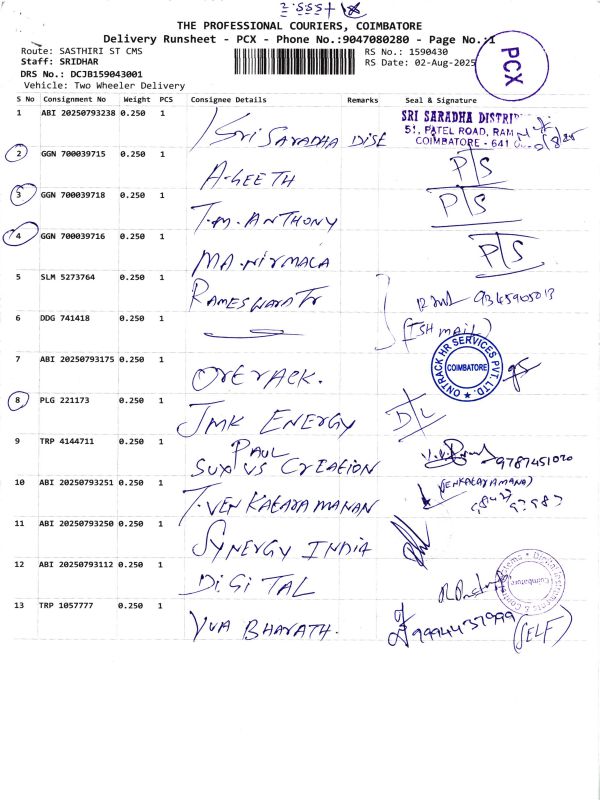 THE PROFESSIONAL COURIERS, COIMBATORE
Delivery Runsheet - PCX - Phone No.:9047080280 - Page No.:1
Route: SASTHIRI ST CMS
RS No.: 1590430
Staff: SRIDHAR
RS Date: 02-Aug-2025
PCX
DRS No.: DCJB159043001
Vehicle: Two Wheeler Delivery
S No Consignment No Weight PCS Consignee Details Remarks Seal & Signature
1 ABI 20250793238 0.250 1 Sri SARADHA DISE
SRI SARADHA DISTRI
51, PATEL ROAD, RAM
COIMBATORE - 641
2 GGN 700039715 0.250 1 A-GEETH P/S
3 GGN 700039718 0.250 1 T.M. ANTHONY P/S
4 GGN 700039716 0.250 1 MA.NIRMALA P/S
5 SLM 5273764 0.250 1 RAMESWARA Tr
6 DDG 741418 0.250 1
7 ABI 20250793175 0.250 1
ONTRACK HR SERVICES PVT. LTD. COIMBATORE
8 PLG 221173 0.250 1 JMK ENERGY D/L
9 TRP 4144711 0.250 1 PAUL
9787451020
10 ABI 20250793251 0.250 1 T.VENKATARAMANAN
(VENKATARAMANA)
11 ABI 20250793250 0.250 1 SYNERGY INDIA
12 ABI 20250793112 0.250 1 DIGITAL
Digital Instruments & Control Systems Coimbatore
13 TRP 1057777 0.250 1 YUVA BHARATH.
9994437999
(SELF)